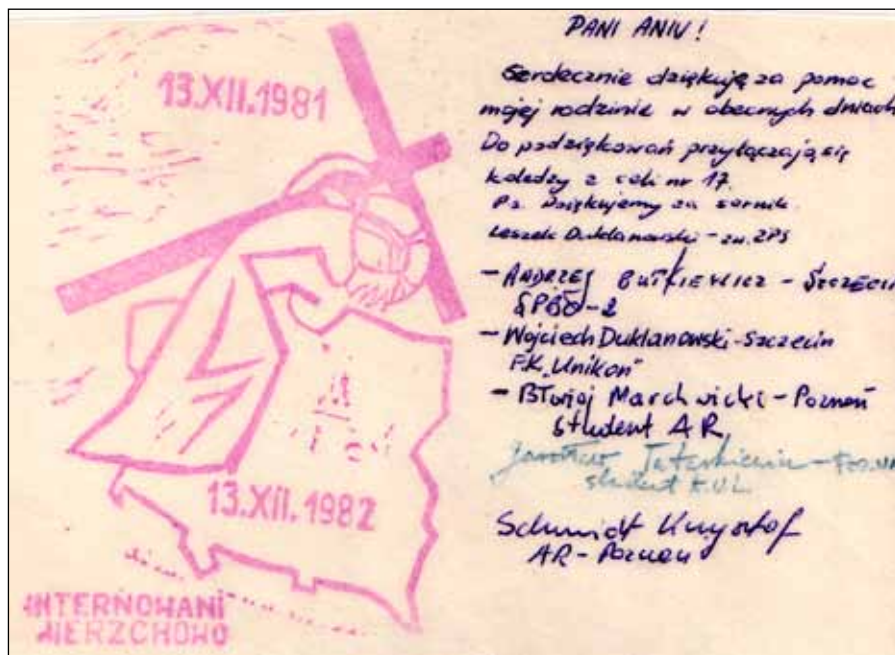 13.XII.1981
13.XII.1982
INTERNOWANI
WIERZCHOWO
PANI ANIU!
Serdecznie dziękuję za pomoc
mojej rodzinie w obecnych dniach
Do podziękowań przyłączają się
koledzy z celi nr 17.
Ps. Dziękujemy za sernik.
Leszek Duklanowski - ZPS
- ANDRZEJ BUTKIEWICZ - SZCZECIN
SPBO-2
- Wojciech Duklanowski - Szczecin
F.K. "Unikon"
- Błażej Marchwicki - Poznań
Student AR
Jarosław
student KUL
Schmidt Krzysztof
AR - Poznań